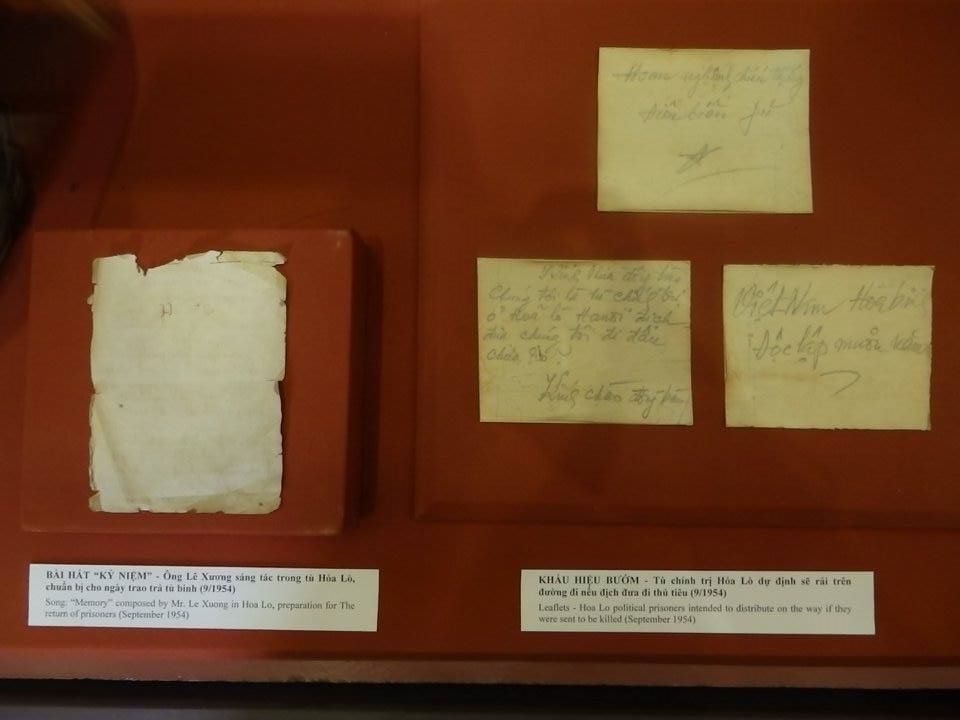 Hoan nghênh chiến thắng
Điện biên phủ
Kính thưa đồng bào
Chúng tôi là tù chính trị
ở Hoả lò Hanoi địch
đưa chúng tôi đi đâu
chưa rõ?
Kính chào đồng bào
Việt Nam Hoà bình
Độc lập muôn năm
BÀI HÁT “KỶ NIỆM” - Ông Lê Xương sáng tác trong tù Hỏa Lò,
chuẩn bị cho ngày trao trả tù binh (9/1954)
Song: “Memory” composed by Mr. Le Xuong in Hoa Lo, preparation for The
return of prisoners (September 1954)
KHẨU HIỆU BƯỚM - Tù chính trị Hỏa Lò dự định sẽ rải trên
đường đi nếu địch đưa đi thủ tiêu (9/1954)
Leaflets - Hoa Lo political prisoners intended to distribute on the way if they
were sent to be killed (September 1954)